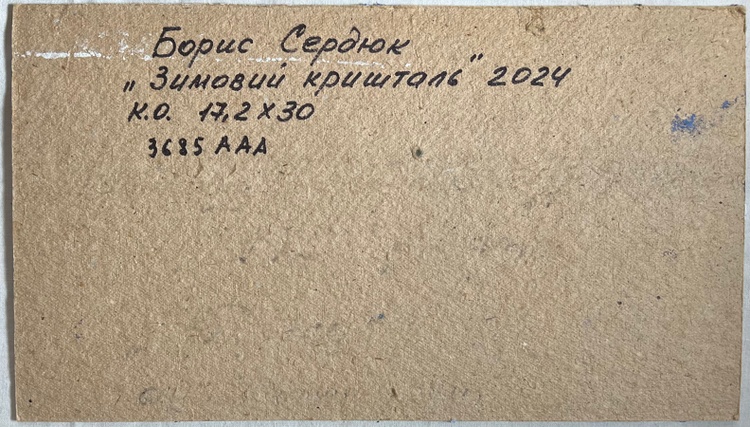 Борис Сердюк
„Зимовий кришталь" 2024
К.О. 17,2 х 30
3685 ААА